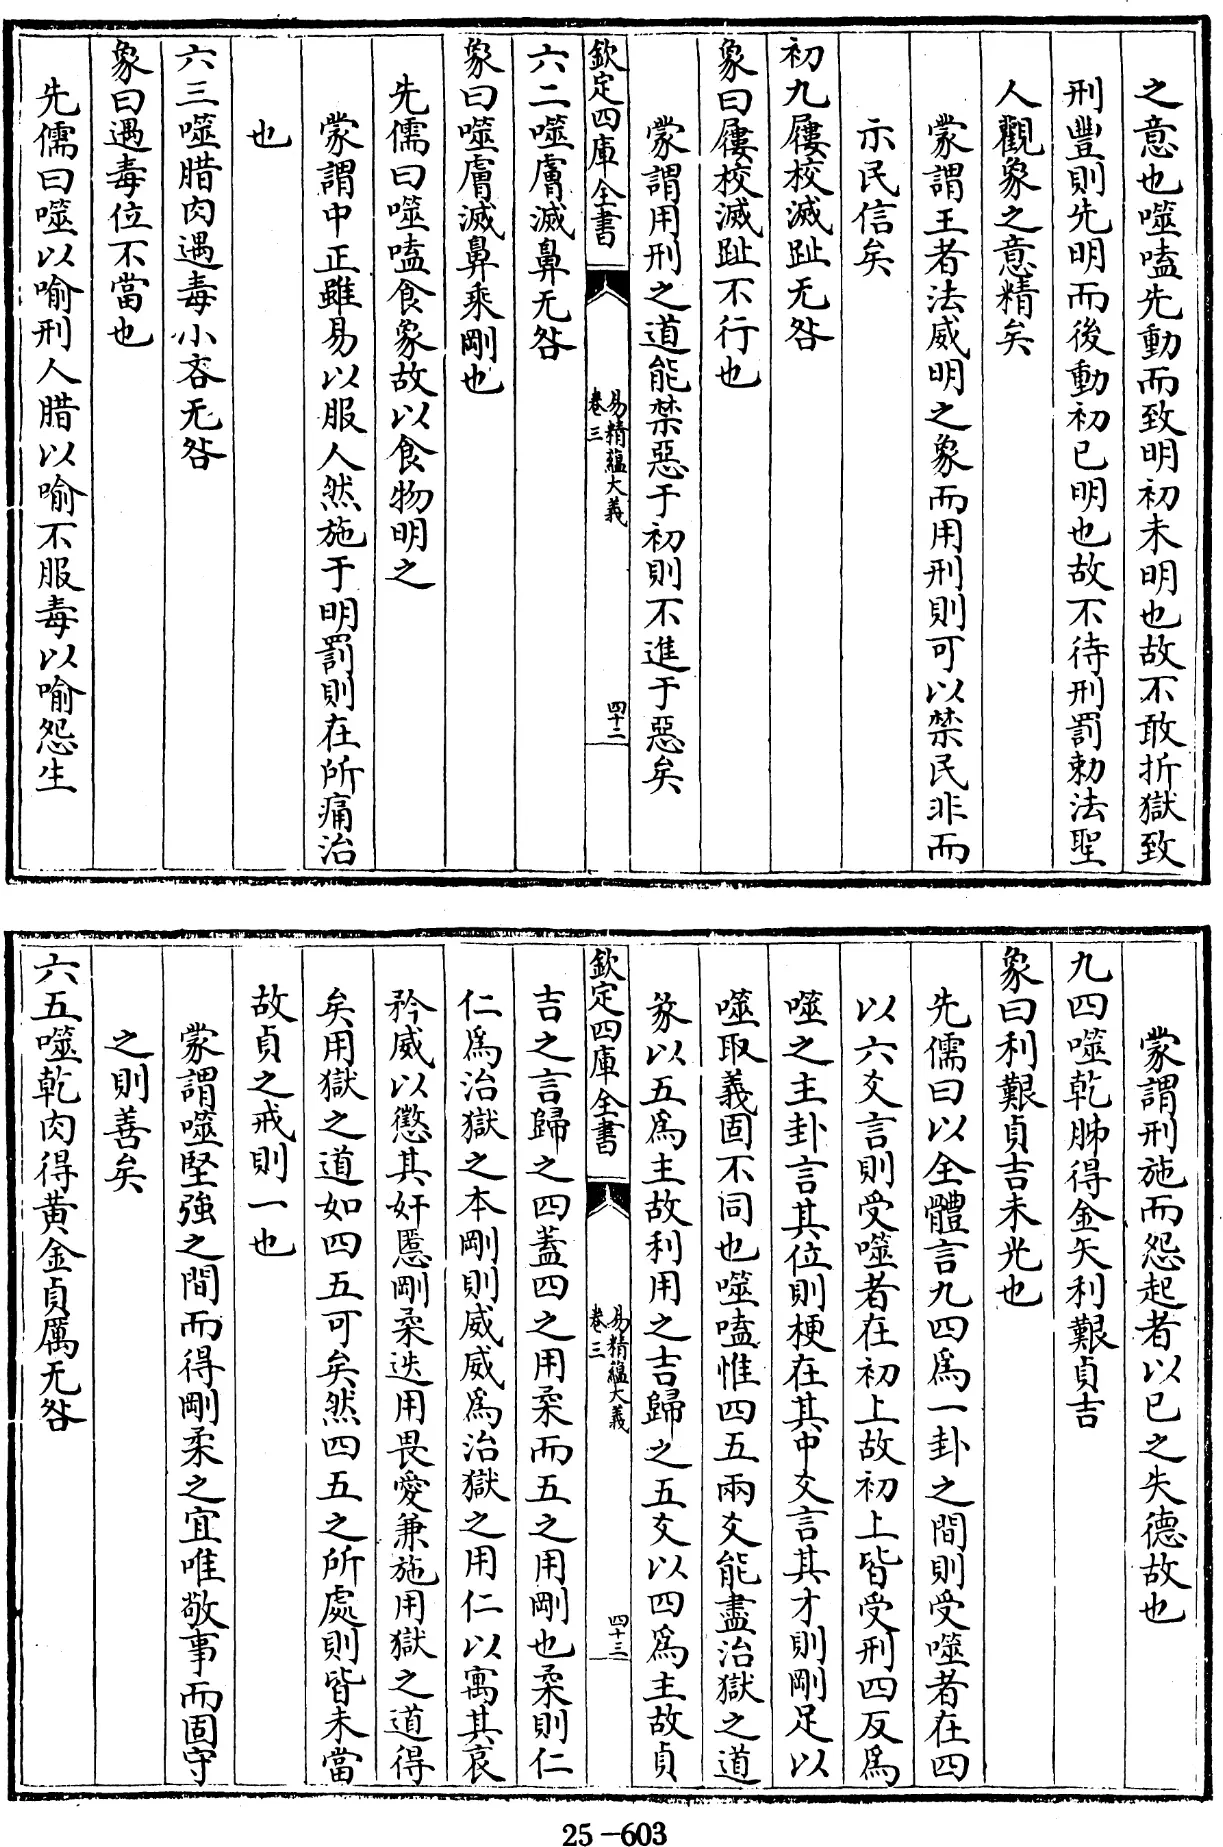 之意也噬嗑先動而致明初未明也故不敢折獄致
刑豐則先明而後動初已明也故不待刑罰勅法聖
人觀象之意精矣
蒙謂王者法威明之象而用刑則可以禁民非而
示民信矣
初九屨校滅趾无咎
象曰屨校滅趾不行也
蒙謂用刑之道能禁惡于初則不進于惡矣
欽定四庫全書
易精蘊大義
卷三
四十二
六二噬膚滅鼻无咎
象曰噬膚滅鼻乘剛也
先儒曰噬嗑食象故以食物明之
蒙謂中正雖易以服人然施于明罰則在所痛治
也
六三噬腊肉遇毒小吝无咎
象曰遇毒位不當也
先儒曰噬以喻刑人腊以喻不服毒以喻怨生
蒙謂刑施而怨起者以已之失德故也
九四噬乾胏得金矢利艱貞吉
象曰利艱貞吉未光也
先儒曰以全體言九四爲一卦之間則受噬者在四
以六爻言則受噬者在初上故初上皆受刑四反爲
噬之主卦言其位則梗在其中爻言其才則剛足以
噬取義固不同也噬嗑惟四五兩爻能盡治獄之道
彖以五爲主故利用之吉歸之五爻以四爲主故貞
欽定四庫全書
易精蘊大義
卷三
四十三
吉之言歸之四蓋四之用柔而五之用剛也柔則仁
仁爲治獄之本剛則威威爲治獄之用仁以寓其哀
矜威以懲其奸慝剛柔迭用畏愛兼施用獄之道得
矣用獄之道如四五可矣然四五之所處則皆未當
故貞之戒則一也
蒙謂噬堅強之間而得剛柔之宜唯敬事而固守
之則善矣
六五噬乾肉得黃金貞厲无咎
25-603